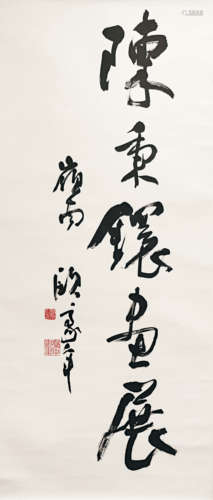 陳秉鐸畫展
嶺南
歐豪年